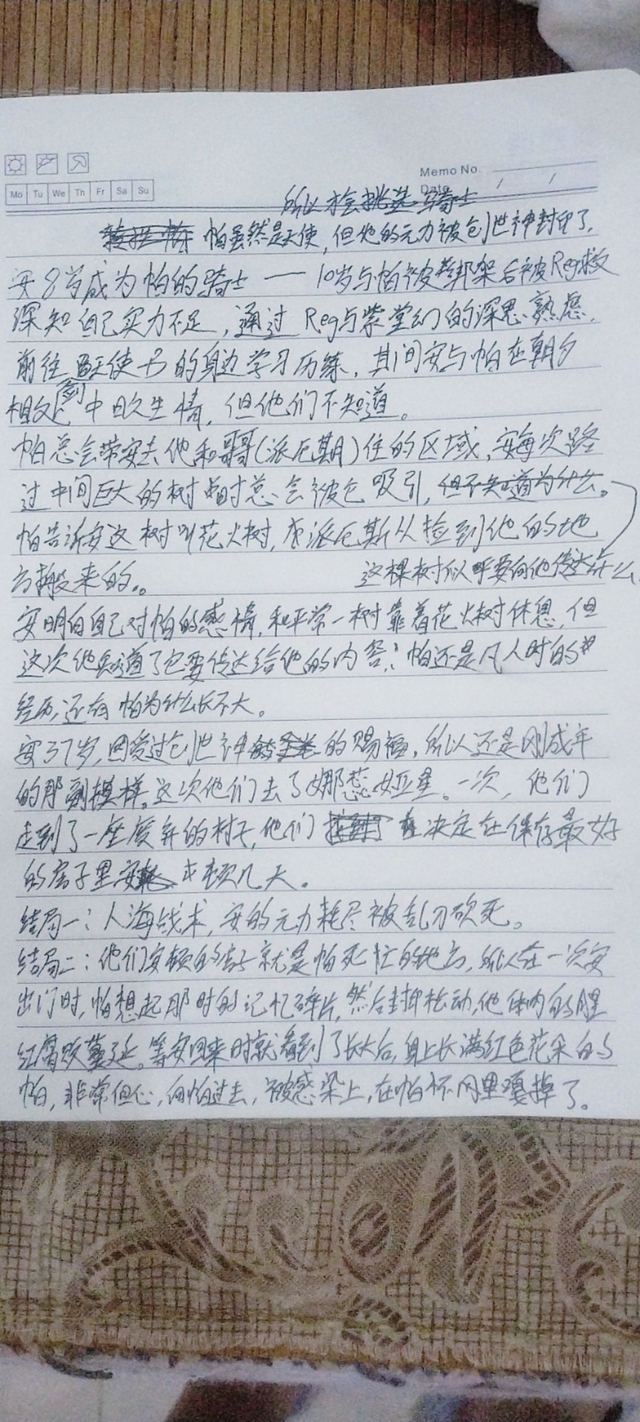 Memo No.
Mo Tu We Th Fr Sa Su
Date / /
所以才会挑选骑士
帕虽然是天使，但他的元力被创世神封印了，
安8岁成为帕的骑士——10岁与帕被绑架后被Reg救
深知自己实力不足，通过Reg与紫堂幻的深思熟虑，
前往天使的身边学习历练，其间安与帕在朝夕
相处中日久生情，但他们不知道。
帕总会带安去他和哥哥(派厄斯)住的区域，安每次路
过中间巨大的树时总会被它吸引，但不知道为什么。
帕告诉安这树叫花火树，派厄斯从捡到他的地
方搬来的。 这棵树似乎要向他传达什么
安明白自己对帕的感情，和平常一样靠着花火树休息，但
这次他知道了它要传达给他的内容：帕还是凡人时的
经历还有帕为什么长不大。
安37岁，因受过创世神的赐福，所以还是刚成年
的那副模样。这次他们去了娜蕊娅星。一次，他们
走到了一座废弃的村子，他们决定在保存最好
的房子里安顿几天。
结局一：人海战术，安的元力耗尽被乱刀砍死。
结局二：他们安顿的房子就是帕死亡的地方，所以在一次安
出门时，帕想起那时的记忆碎片，然后封印松动，他体内的腥
红腐败蔓延。等安回来时就看到了长大后，身上长满红色花朵的
帕，非常担心，向帕过去，被感染上，在帕怀里嘎掉了。